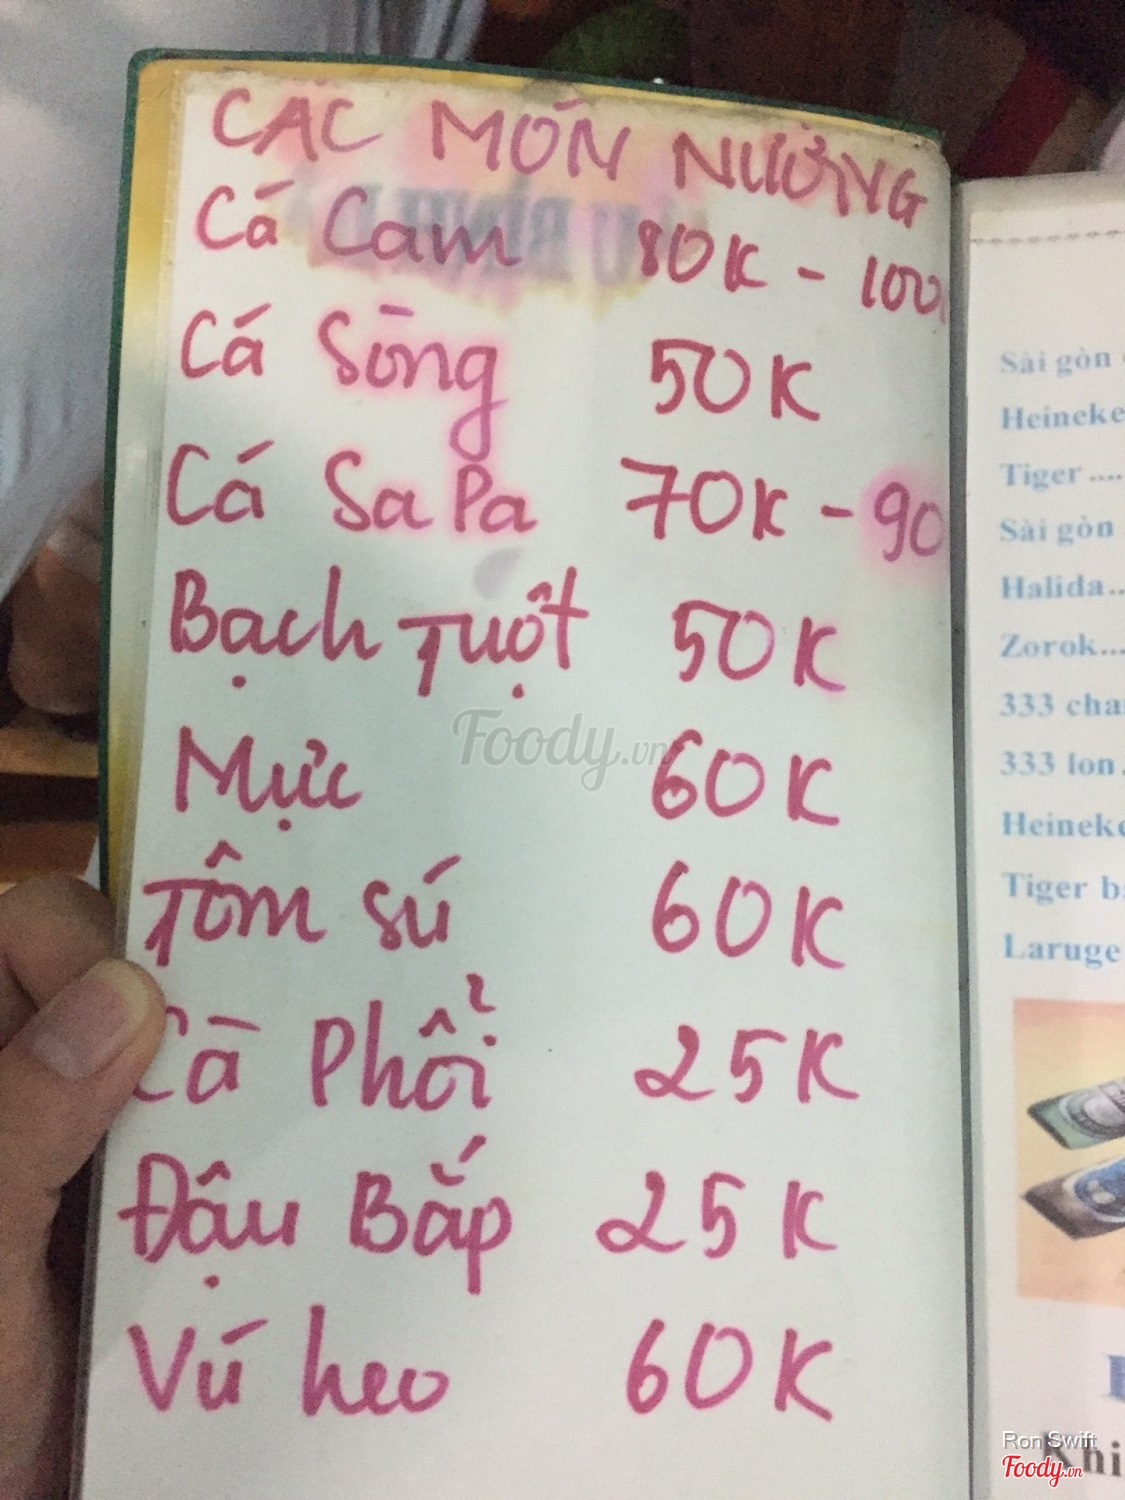 CÁC MÓN NƯỚNG
Cá Cam 80K - 100
Cá Sòng 50K
Cá Sa Pa 70K - 90
Bạch Tuột 50K
Mực 60K
Tôm sú 60K
Cà Phổi 25K
Đậu Bắp 25K
Vú heo 60K
Foody.vn
Sài gòn
Heineke
Tiger ....
Sài gòn
Halida..
Zorok...
333 cha
333 lon.
Heineke
Tiger b
Laruge
Khi
Ron Swift
Foody.vn